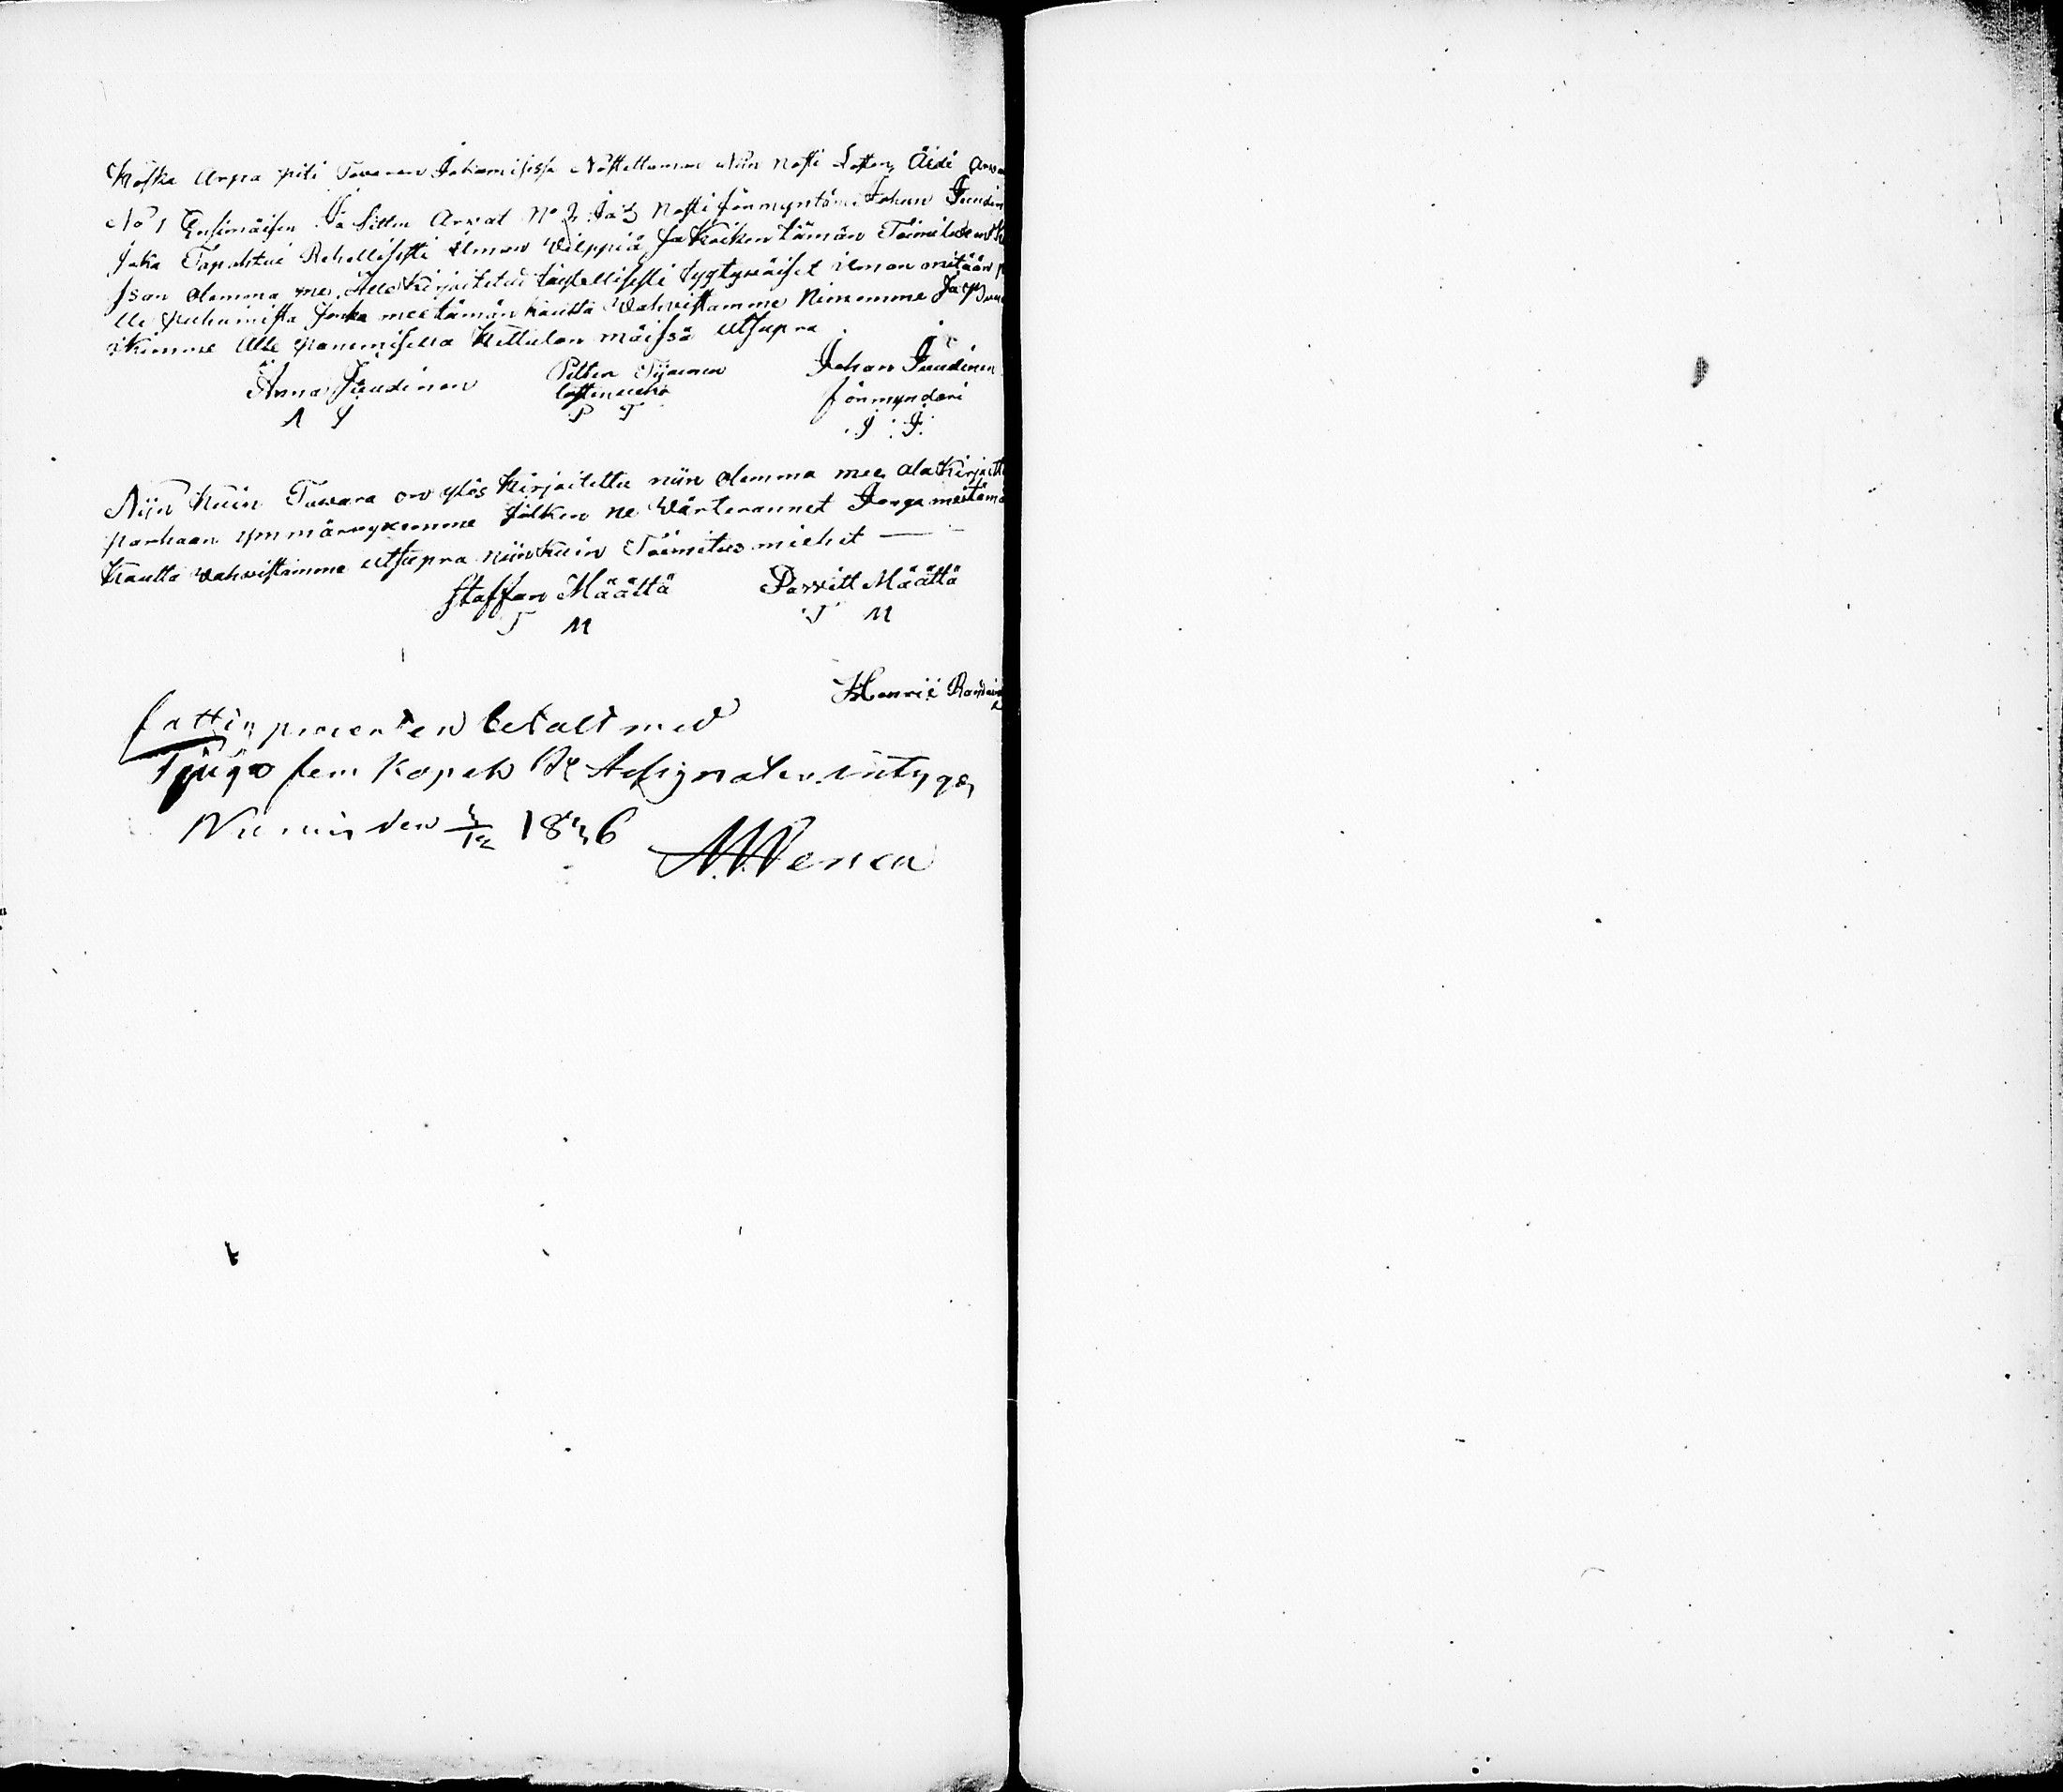 Koska Arpa piti Tavaran Jakamisessa Nostettaman Niin nosti Lasten Äidi Arvan
No 1 Ensimäisen Ja sitten Arvat No 2 Ja 3 Nosti förmyntäri Johan Juudin
Joka Tapahtui Rehellisesti ilman vilppiä Ja Kaiken tämän Toimituxen
san olemma me Alla Kirjoitetud täytellisesti tygtyväiset ilman mitään
lle puhumista Jonka mee tämän kautta Vahvistamme Nimemme Ja Puu
ikimme Alle panemisella Kettulan mäissä utsupra
Anna Juudinen Petter Tijainen Johan Juudinen
lastin mies förmynderi
A J P T J J
Niin Kuin Tavara on ylös Kirjoitettu niin olemma mee ala Kirjoitt
parhaan ymmärryxemme Jälken ne Värteerannet Jonga mee tämä
Kautta vahvistamme utsupra niinkuin Toimitus miehet —
Staffan Määttä Pavvitt Määttä
T M T M
Henrii
fattig procenten betalt med
Tjugo fem Kopek Bc Assignater intygar
Nurmis den 3/12 1836